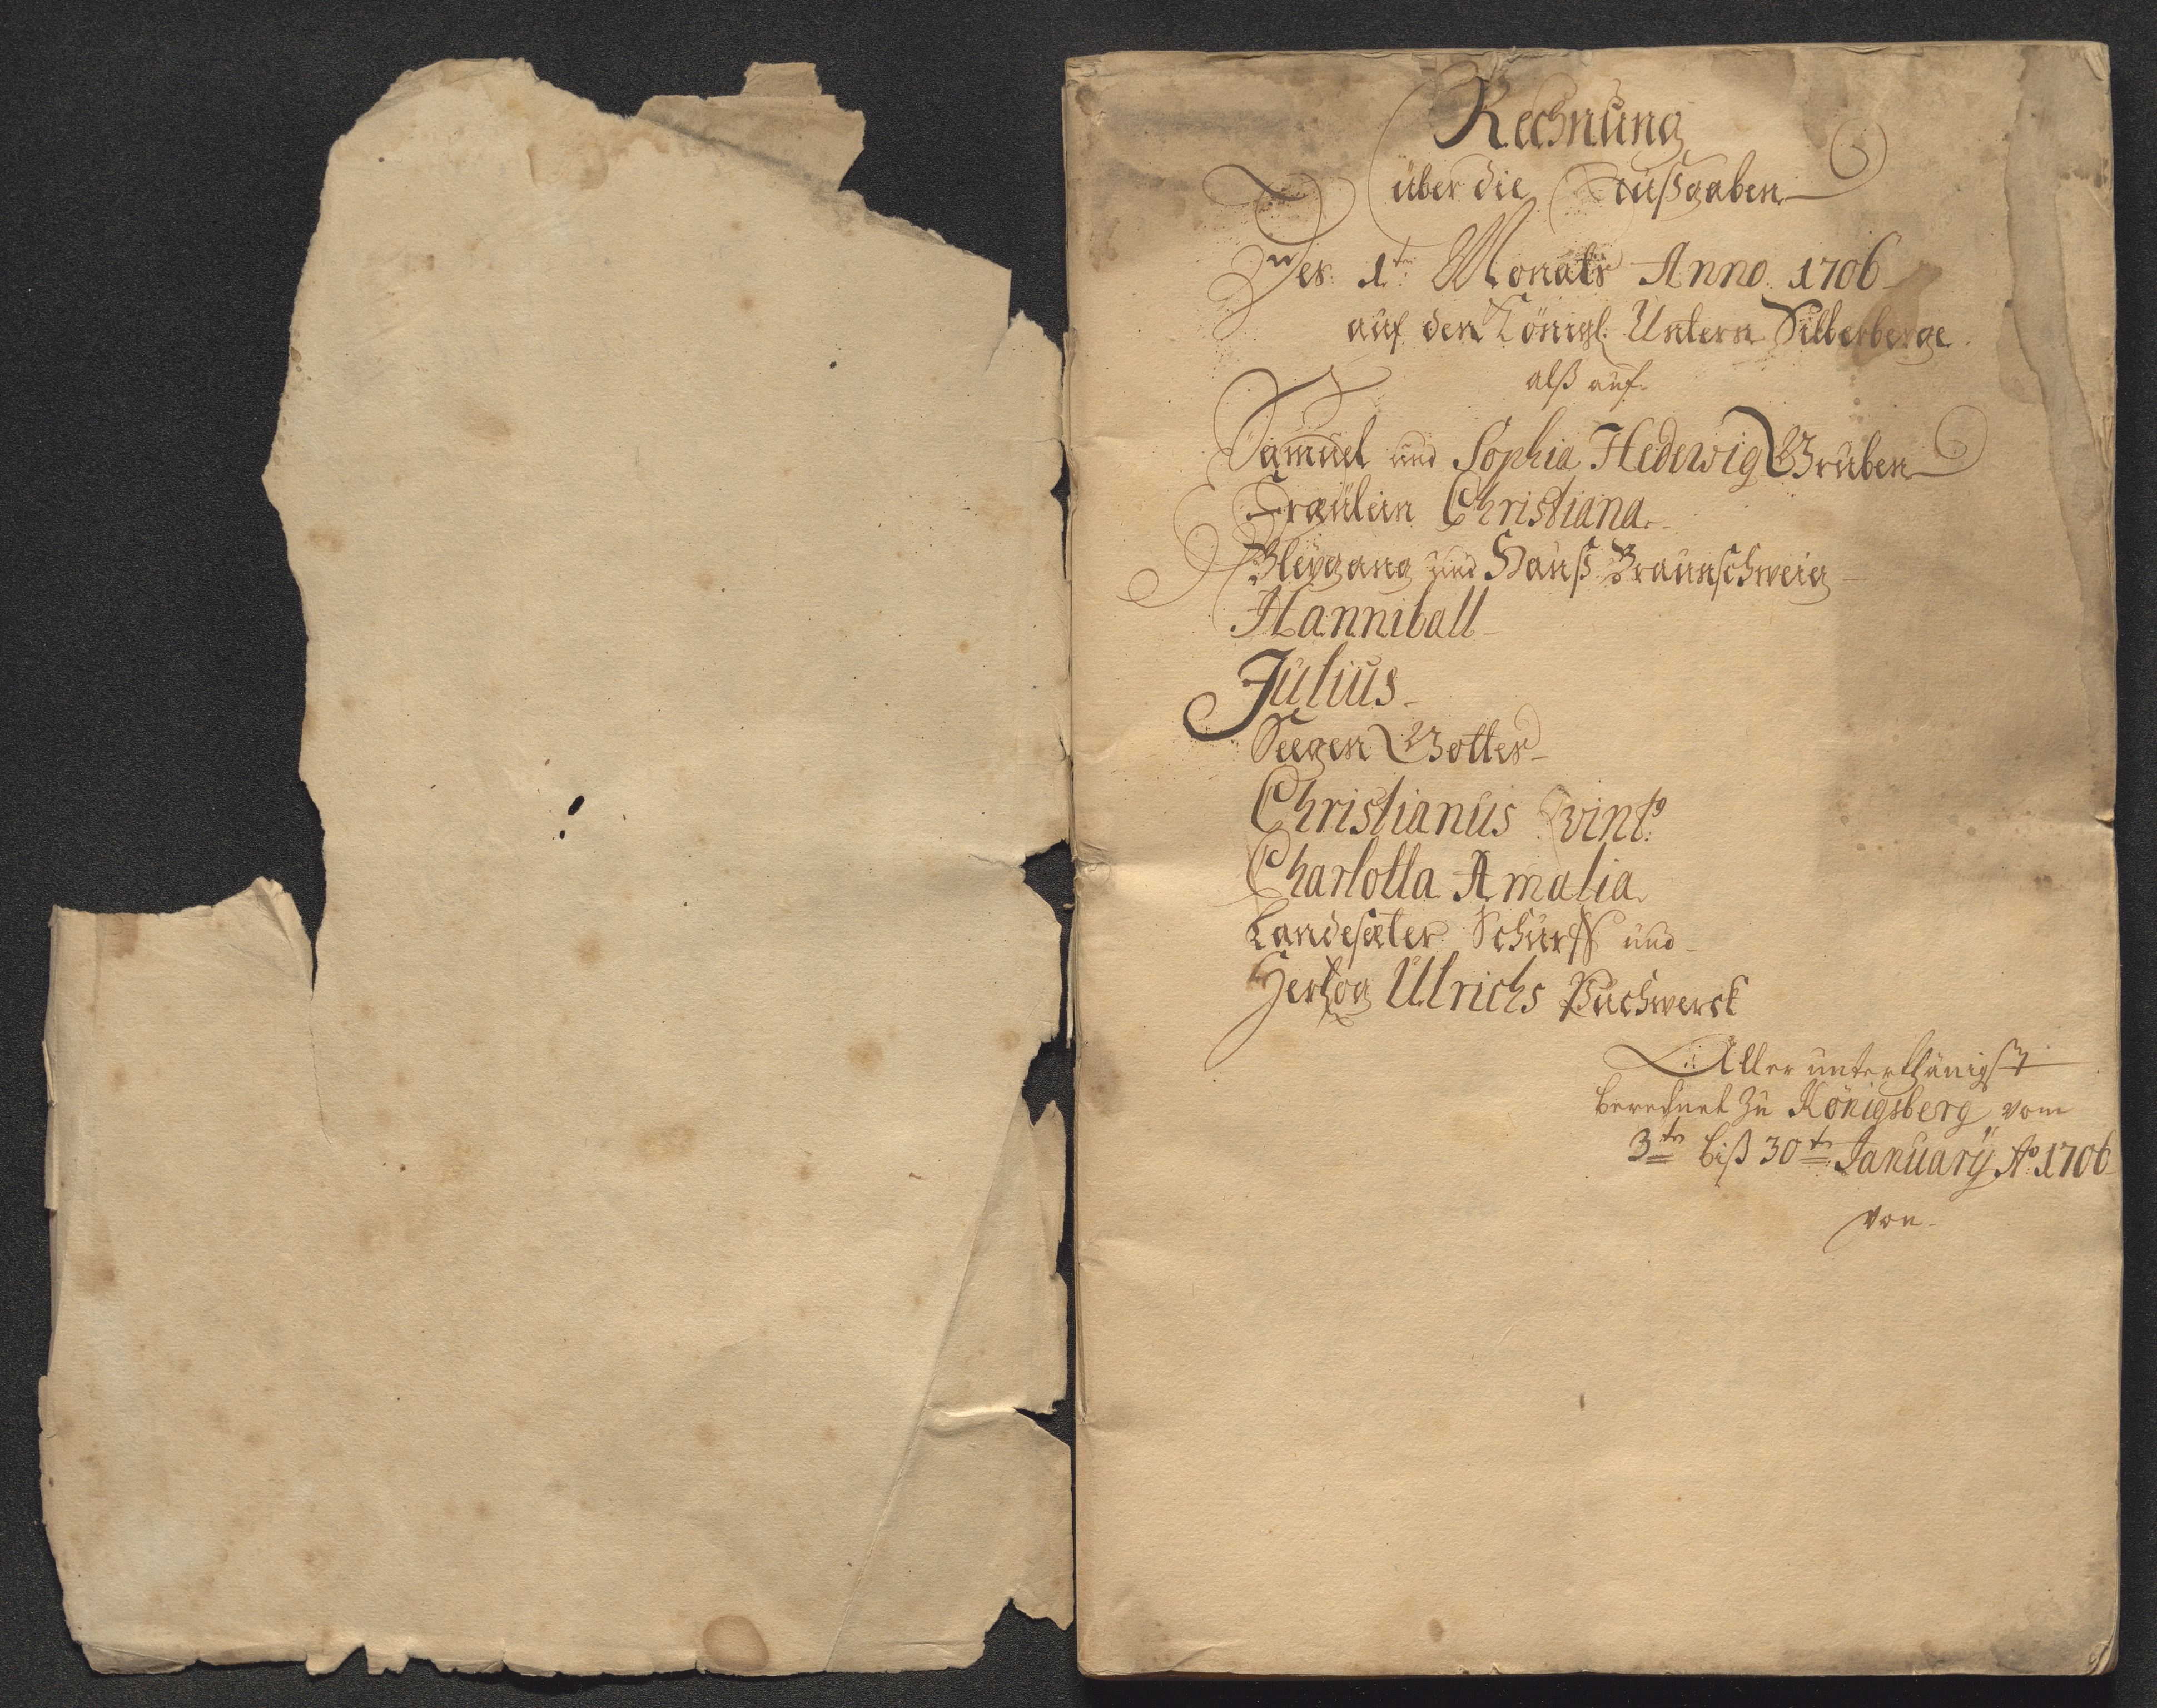 Rechnung
über die Außgaben
Des 1.ten Monats Anno 1706
auf den Königl: Untern Silberberge.
alß auf.
Samuel und Sophia Hedewig Gruben
Fræulein Christiana
Bleygang und Hauß Braunschweig
Hanniball
Julius
Seegen Gottes
Christianus Qvint9
Charlotta Amalia
Landesæter Schürff und
Hertzog Ulrichs Puchwerck
Aller unterthänigst
berechnet zu Königsberg vom
3ten biß 30ten January Ao 1706
von